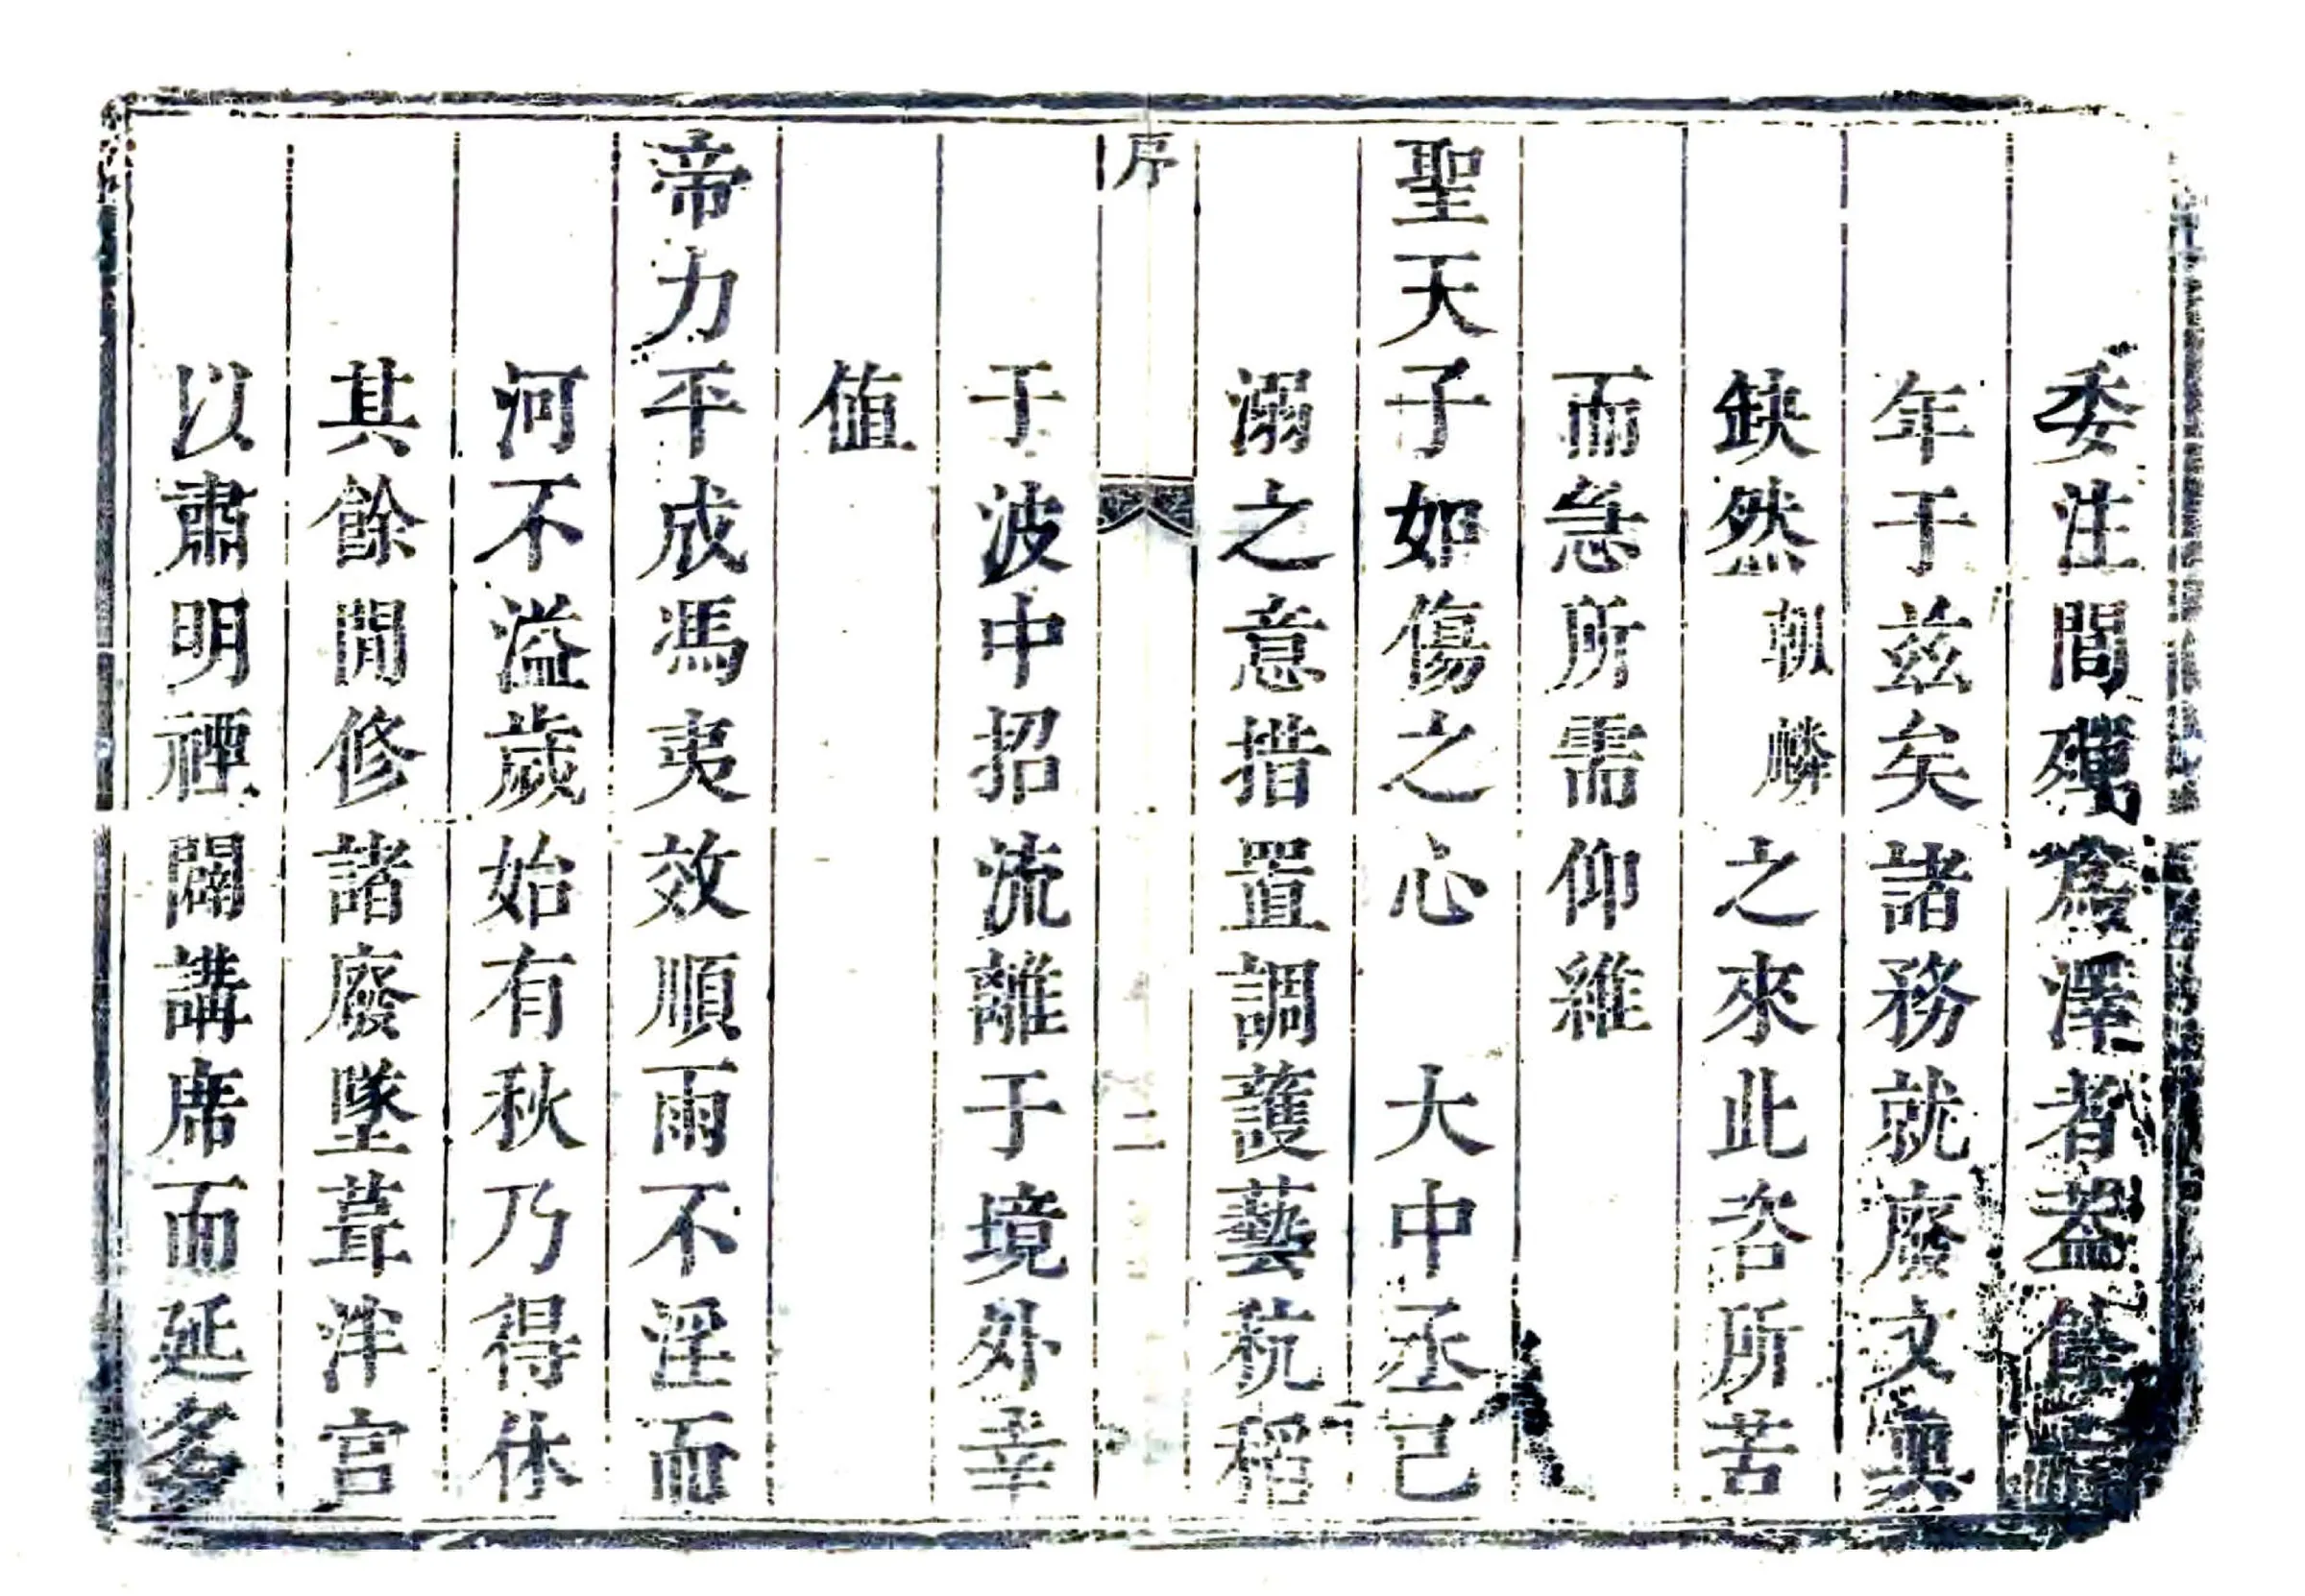 委注間殪為澤者蓋餘
年于茲矣諸務就廢文輿
缺然朝麟之來此咨所苦
而急所需仰維
聖天子如傷之心 大中丞己
溺之意措置調護藝秔稻
序 二
于波中招流離于境外幸
値
帝力平成馮夷效順雨不淫而
河不溢歲始有秋乃得休
其餘閒修諸廢墜葺泮宮
以肅明禋闢講席而延多